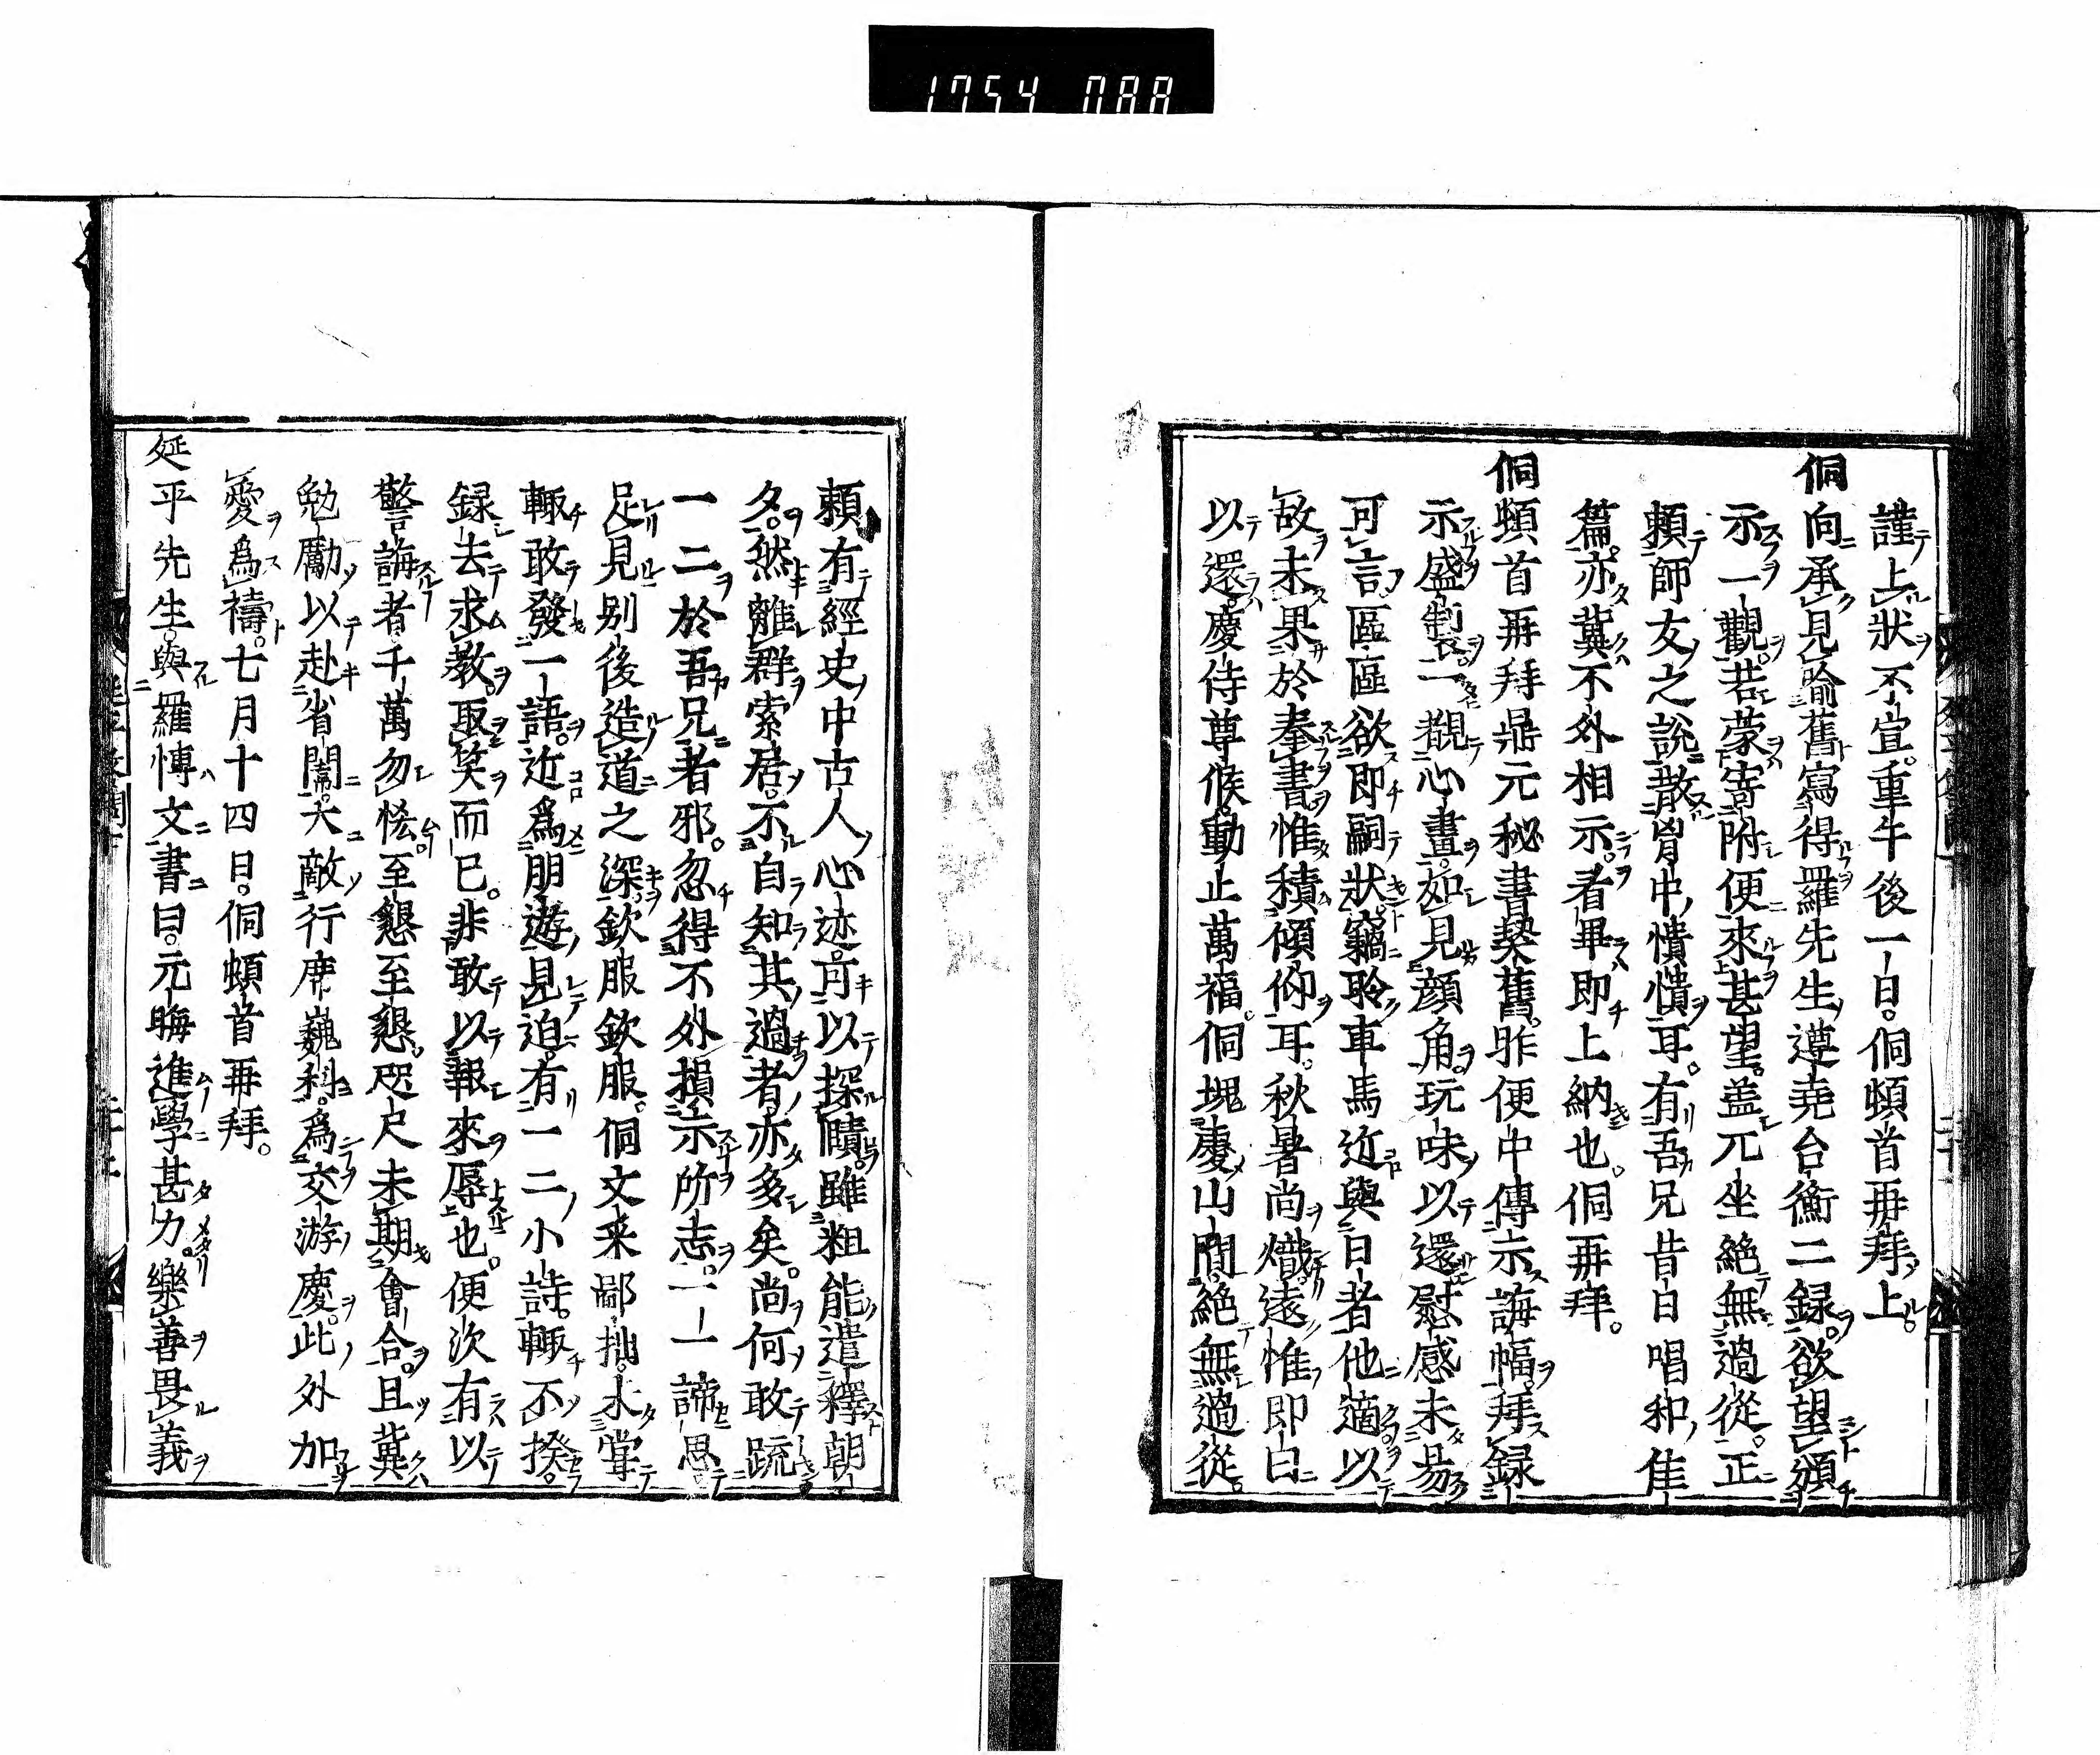 1754 088
謹上狀不宣。重午後一日。侗頓首再拜上。
侗向承見喻舊寫得羅先生遵堯台衡二録。欲望頒
示一觀。若蒙寄附便來甚望。盖兀坐絶無過從。正
頼師友之說散胷中憒憒耳。有吾兄昔日唱和佳
篇。亦冀不外相示。看畢即上納也。侗再拜。
侗頓首再拜鼎元秘書契舊。昨便中傳示誨幅。拜録
示盛製。一觀心畫。如見顔角。玩味以還慰感未易
可言。區區欲即嗣狀。竊聆車馬近與日者他適以
故未果於奉書。惟積傾仰耳。秋暑尚熾。遠惟即日
以還。慶侍尊候。動止萬福。侗塊處山間。絶無過從。
頼有經史中古人心迹可以探賾。雖粗能遣釋朝
夕。然離群索居。不自知其過者亦多矣。尚何敢䟽
一二於吾兄者邪。忽得不外損示所志。一一諦思
足見别後造道之深。欽服欽服。侗文采鄙拙。未甞
輙敢發一語。近爲朋遊見迫。有一二小詩。輙不揆
録去求教。取笑而已。非敢以報來辱也。便次有以
警誨者千萬勿悋至懇至懇。咫尺未期會合。且冀
勉勵以赴省闈。大敵行席巍科。爲交游慶。此外加
愛爲禱。七月十四日。侗頓首再拜。
延平先生。與羅愽文書曰。元晦進學甚力。樂善畏義